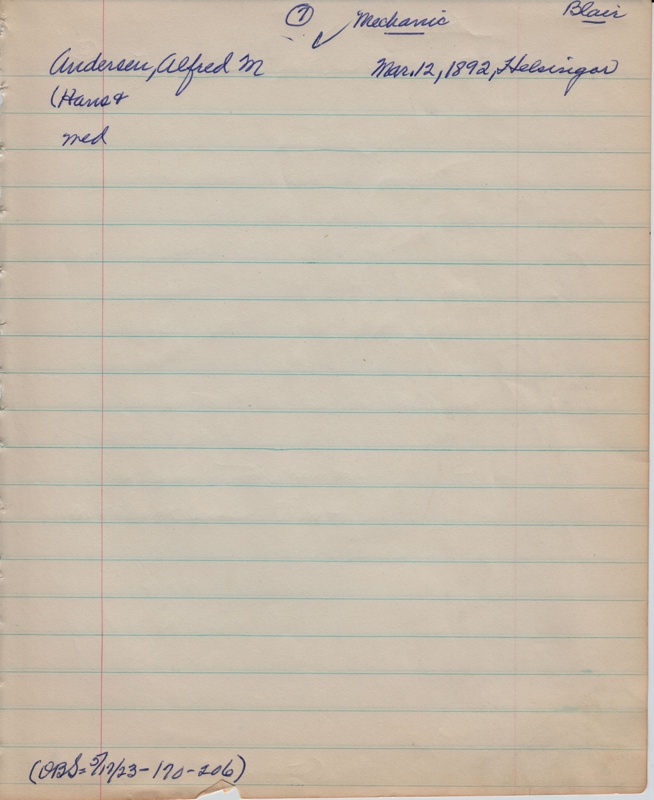 ⑦ ✓ Mechanic Blair
Andersen, Alfred M Mar. 12, 1892, Helsingor
(Hans &
med
(OBS = 5/17/23 - 170 - 206)